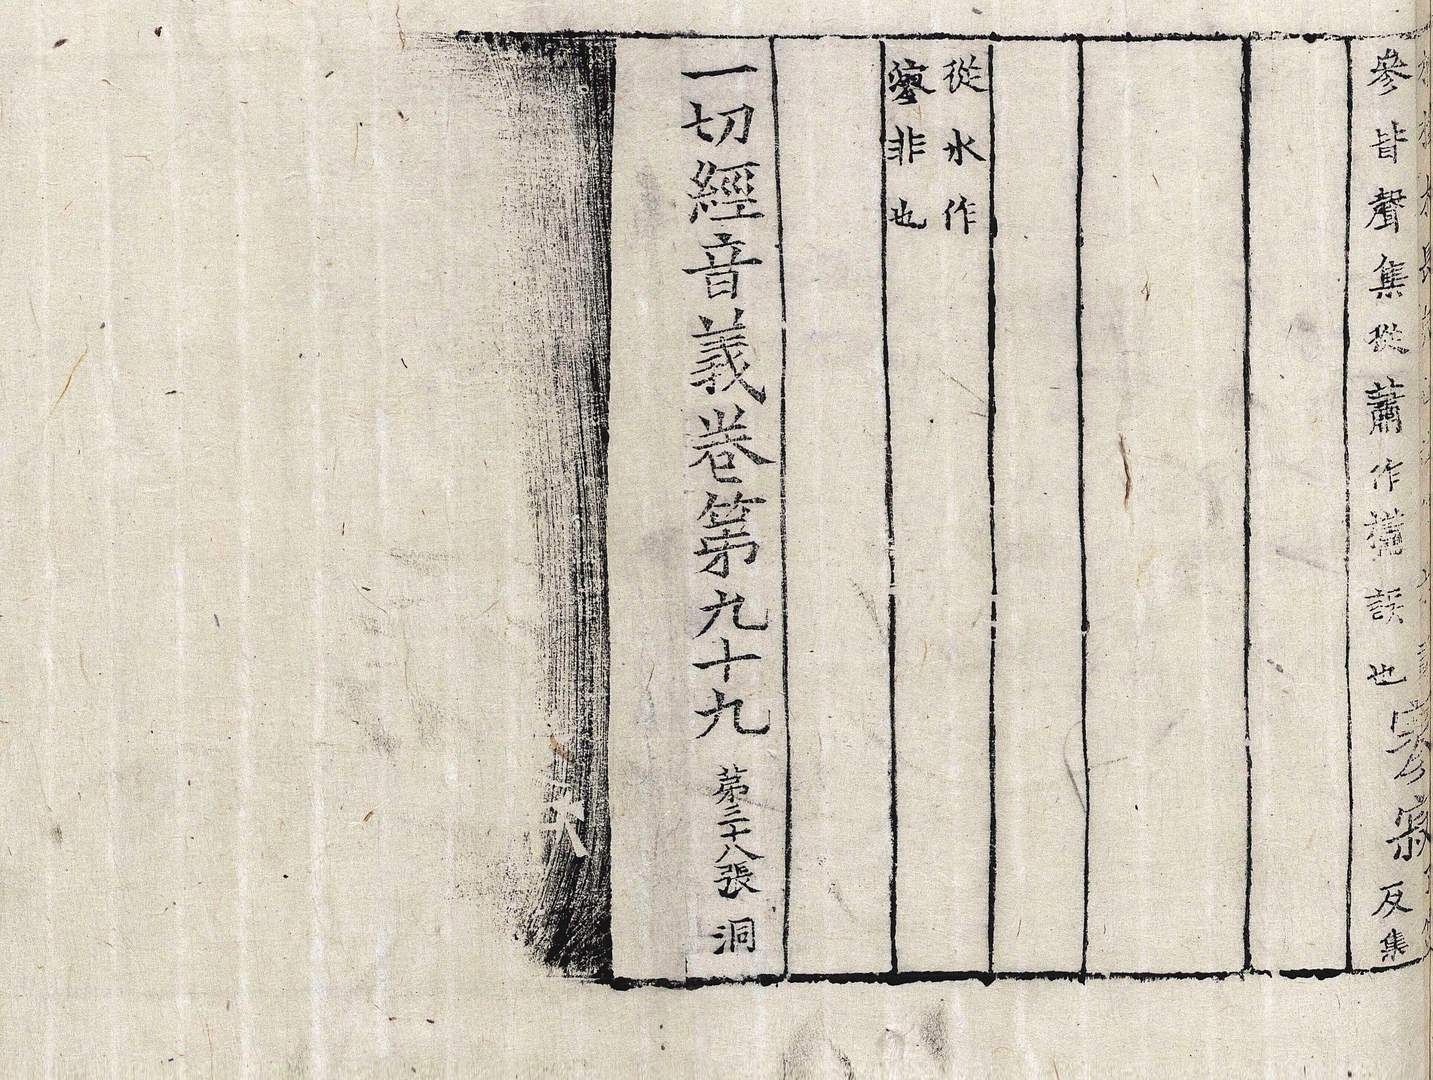 參皆聲集從蕭作𢳇誤也寥寂反集
從水作
寥非也
一切經音義卷第九十九 苐三十八張 洞